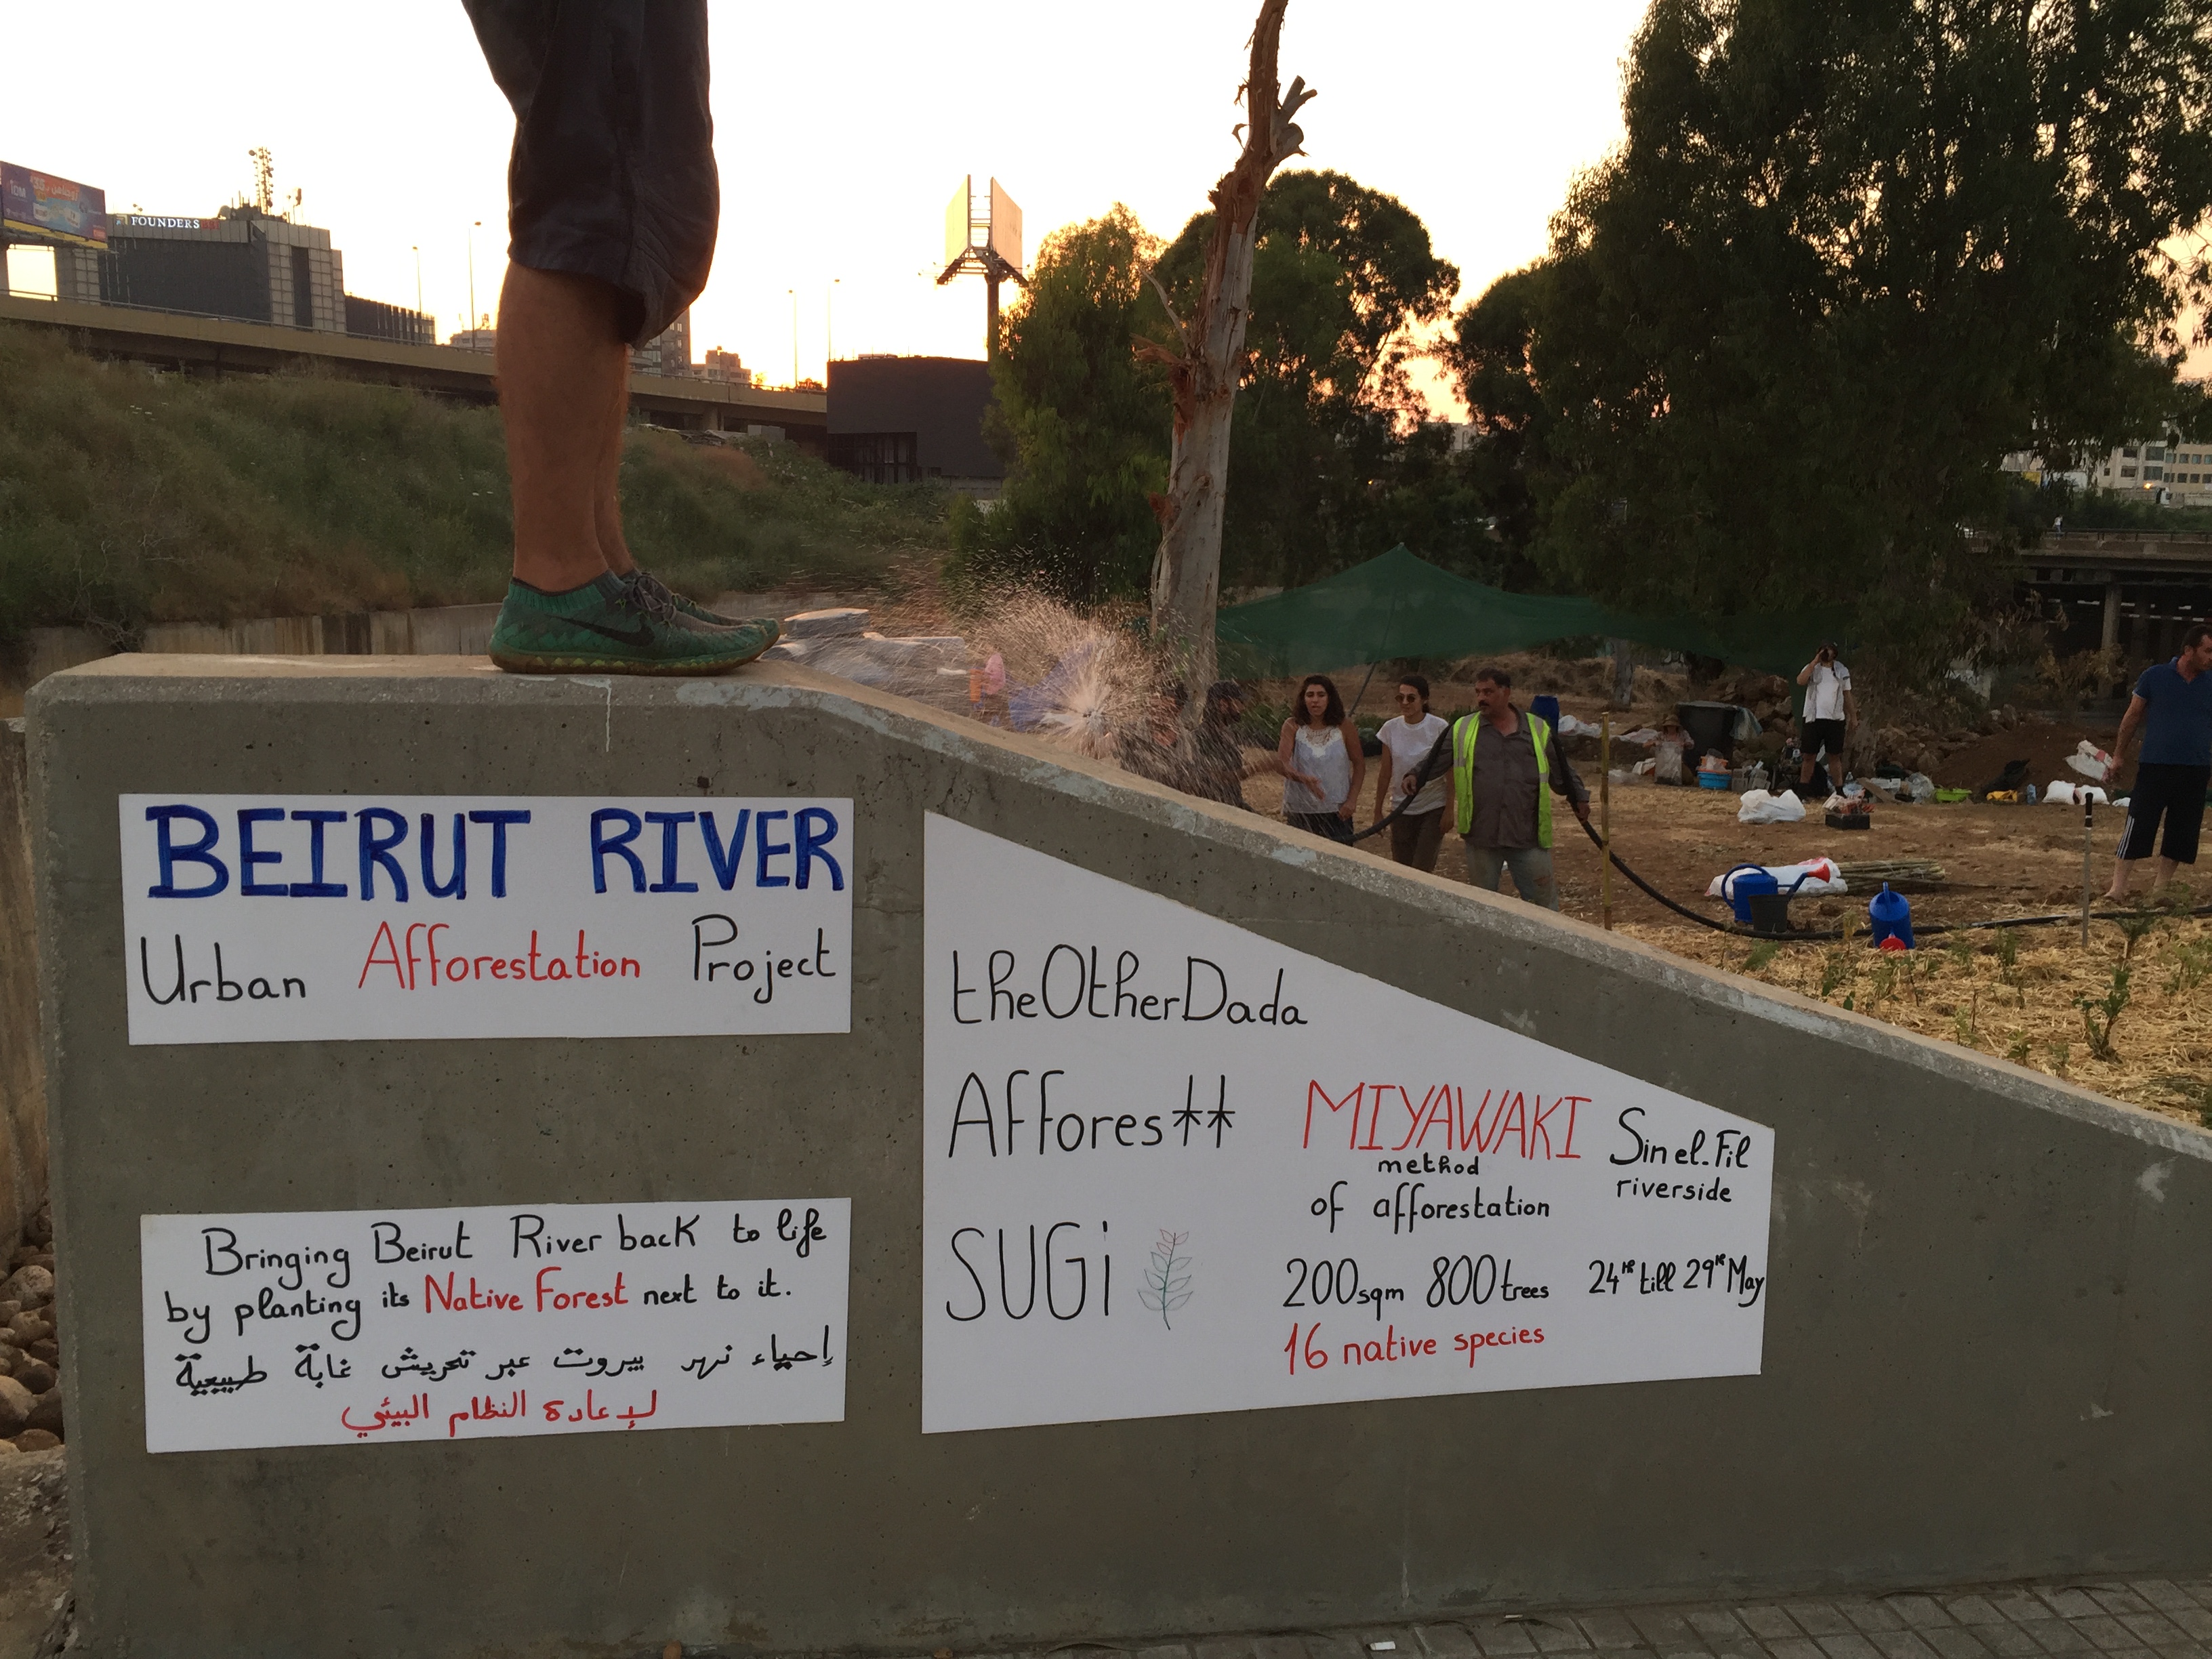 FOUNDERS
BEIRUT RIVER
Urban Afforestation Project
Bringing Beirut River back to life
by planting its Native Forest next to it.
إحياء نهر بيروت عبر تحريش غابة طبيعية
لإعادة النظام البيئي
theOtherDada
Afforestt
SUGi
MIYAWAKI
method
of afforestation
200sqm 800trees
16 native species
Sin el.Fil
riverside
24th till 29th May